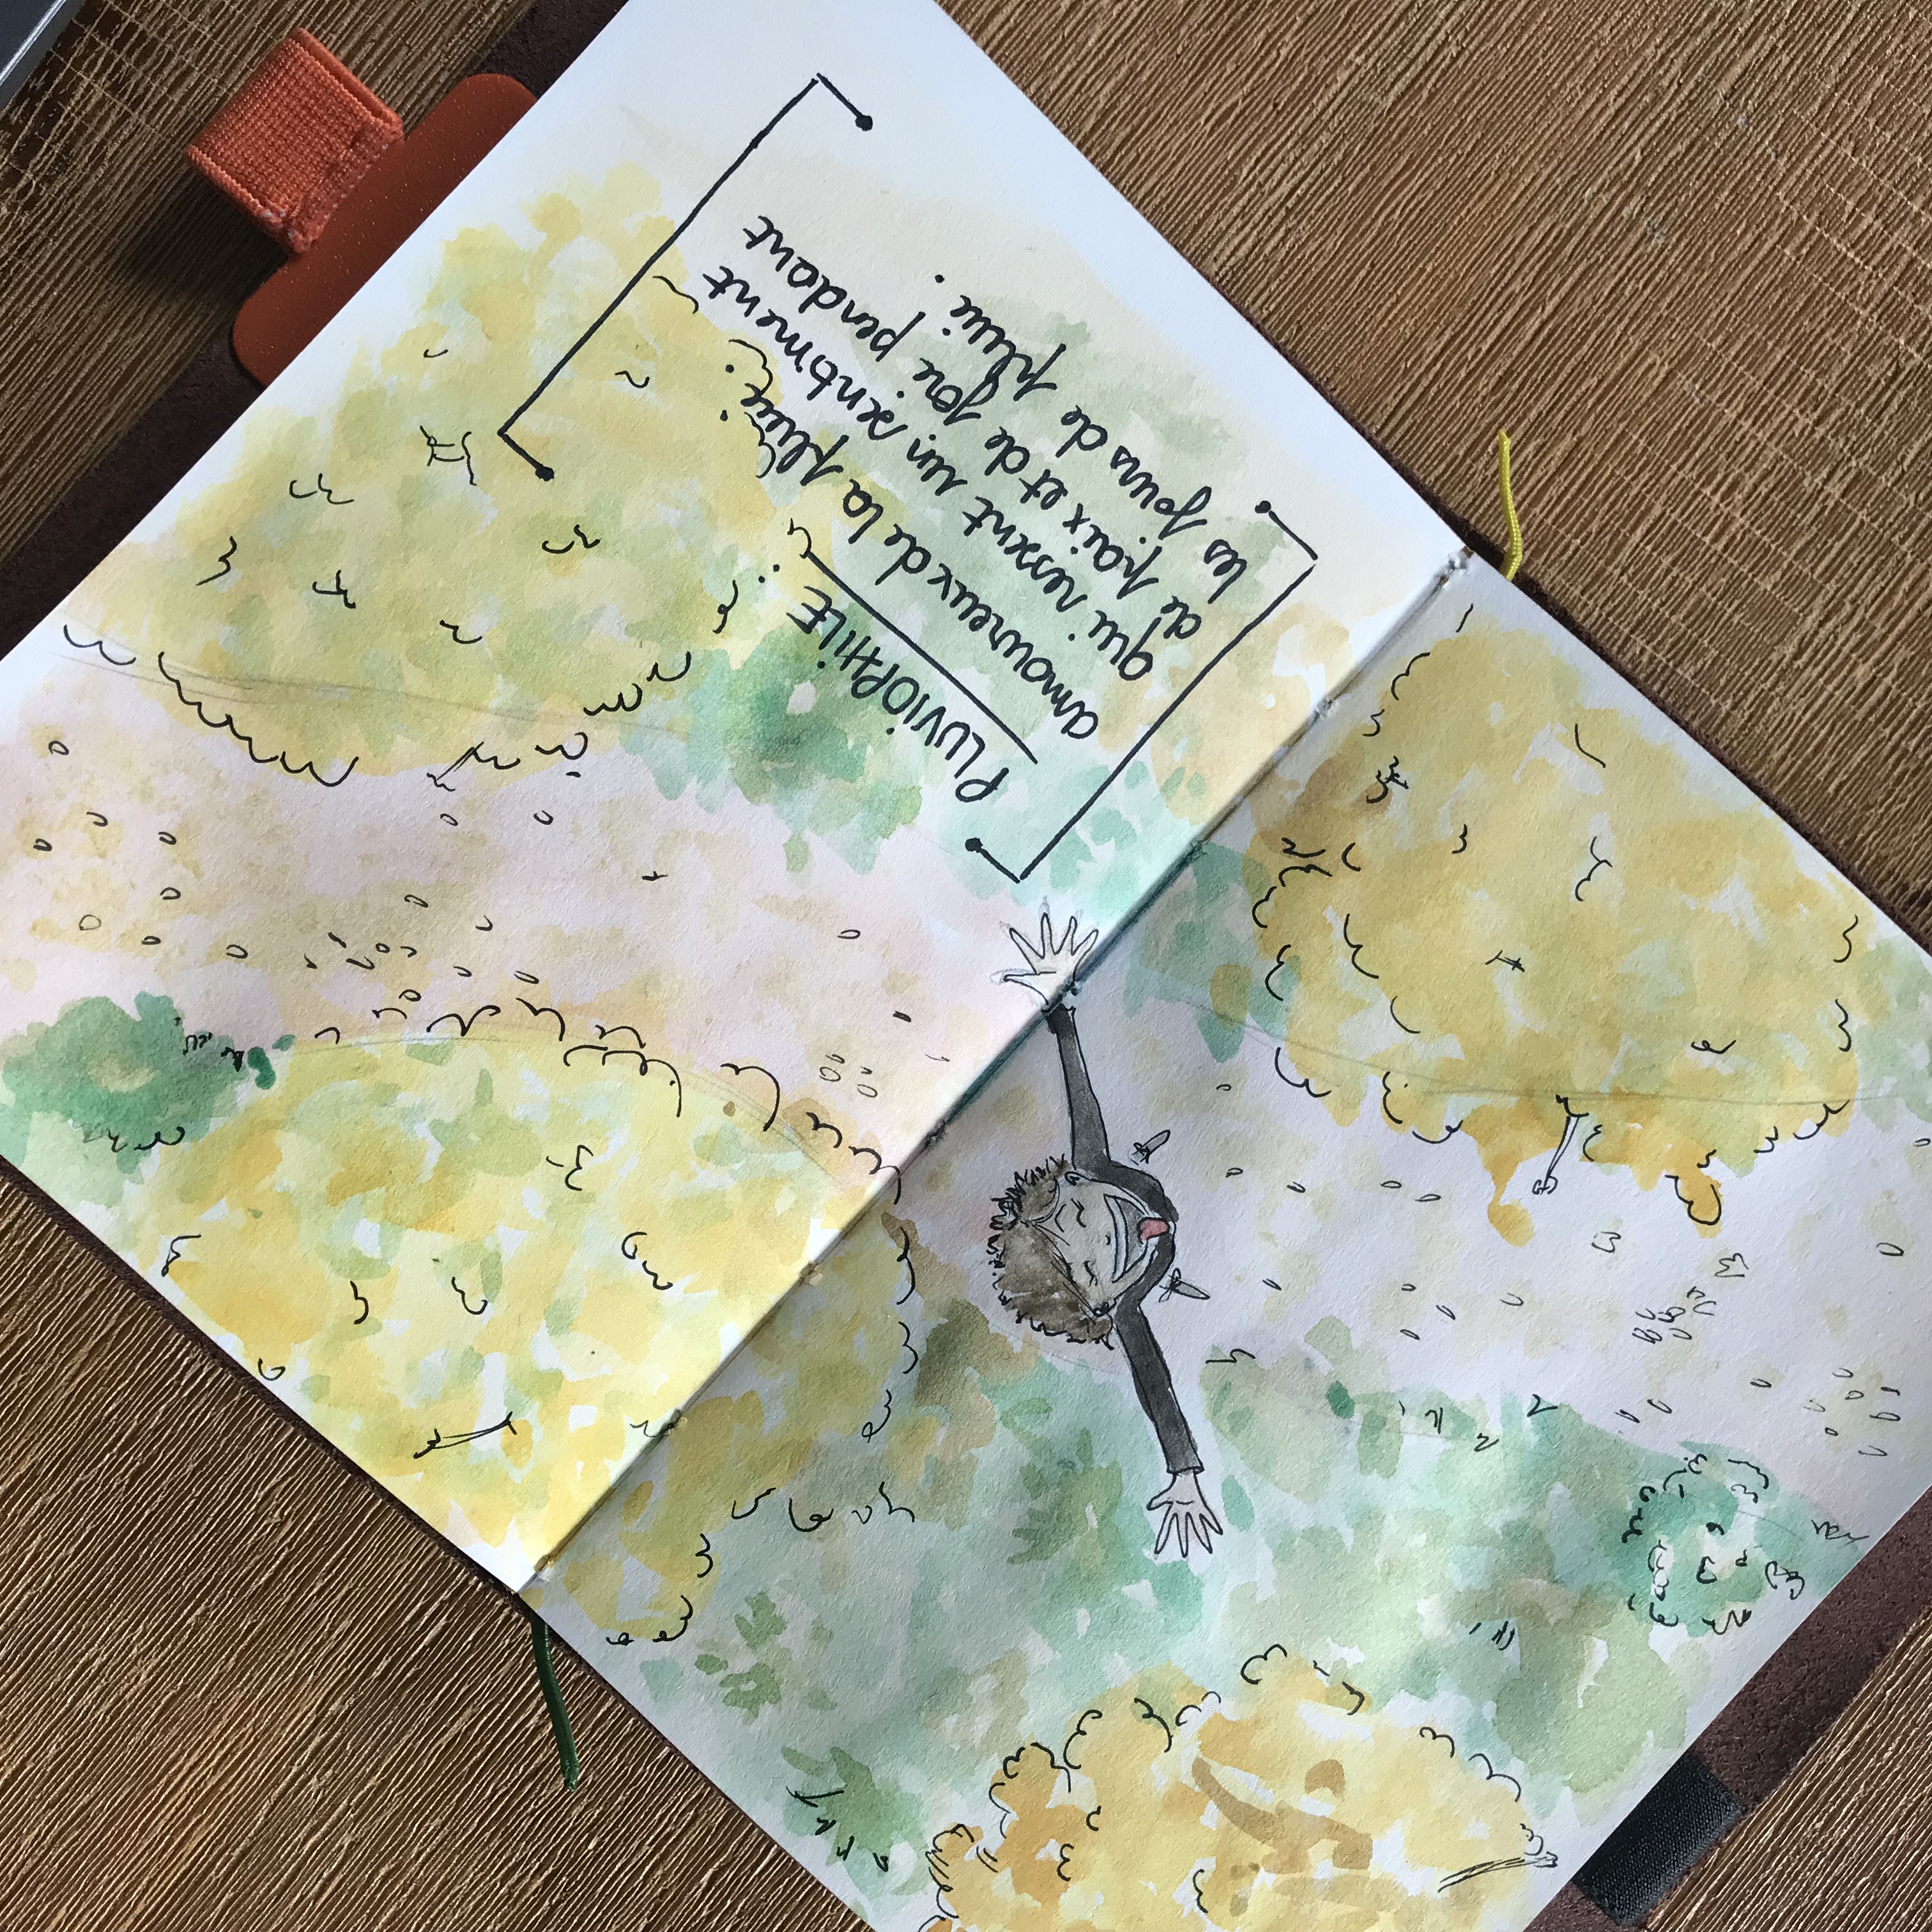 PLUVIOPHILE :
amoureux de la pluie.
qui ressent un sentiment
de paix et de joie pendant
les jours de pluie.